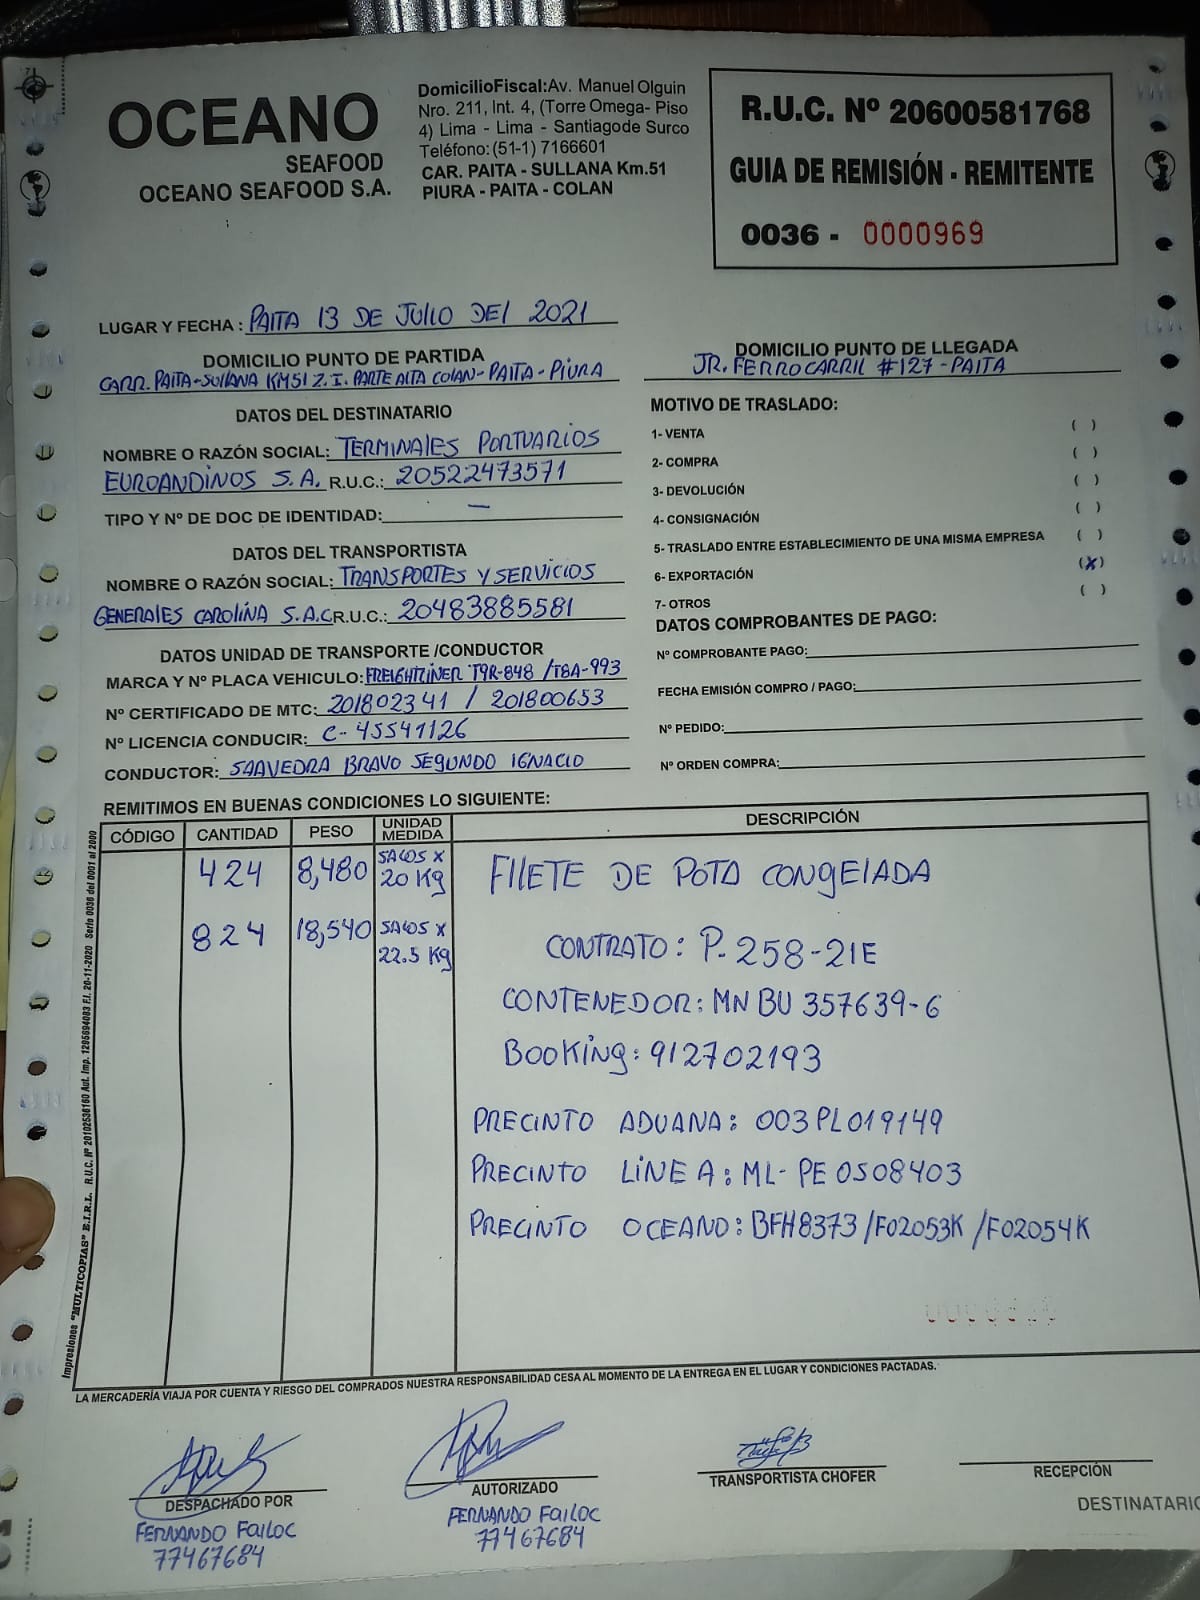 OCEANO
SEAFOOD
OCEANO SEAFOOD S.A.
DomicilioFiscal:Av. Manuel Olguin
Nro. 211, Int. 4, (Torre Omega- Piso
4) Lima - Lima - Santiagode Surco
Teléfono:(51-1) 7166601
CAR. PAITA - SULLANA Km.51
PIURA - PAITA - COLAN
R.U.C. Nº 20600581768
GUIA DE REMISIÓN - REMITENTE
0036 - 0000969
LUGAR Y FECHA : PAITA 13 DE JULIO DEL 2021
DOMICILIO PUNTO DE PARTIDA
CARR. PAITA-SULLANA KM51 Z.I. PARTE ALTA COLAN-PAITA-PIURA
DOMICILIO PUNTO DE LLEGADA
JR. FERROCARRIL #127-PAITA
DATOS DEL DESTINATARIO
NOMBRE O RAZÓN SOCIAL: TERMINALES PORTUARIOS
EUROANDINOS S.A. R.U.C.: 20522473571
TIPO Y Nº DE DOC DE IDENTIDAD: —
DATOS DEL TRANSPORTISTA
NOMBRE O RAZÓN SOCIAL: TRANSPORTES Y SERVICIOS
GENERALES CAROLINA S.A.C R.U.C.: 20483885581
DATOS UNIDAD DE TRANSPORTE /CONDUCTOR
MARCA Y Nº PLACA VEHICULO: FREIGHTLINER T9R-848 /T8A-993
Nº CERTIFICADO DE MTC: 201802341 / 201800653
Nº LICENCIA CONDUCIR: C-45541126
CONDUCTOR: SAAVEDRA BRAVO SEGUNDO IGNACIO
MOTIVO DE TRASLADO:
1- VENTA ( )
2- COMPRA ( )
3- DEVOLUCIÓN ( )
4- CONSIGNACIÓN ( )
5- TRASLADO ENTRE ESTABLECIMIENTO DE UNA MISMA EMPRESA ( )
6- EXPORTACIÓN (X)
7- OTROS ( )
DATOS COMPROBANTES DE PAGO:
Nº COMPROBANTE PAGO:
FECHA EMISIÓN COMPRO / PAGO:
Nº PEDIDO:
Nº ORDEN COMPRA:
REMITIMOS EN BUENAS CONDICIONES LO SIGUIENTE:
CÓDIGO CANTIDAD PESO UNIDAD MEDIDA DESCRIPCIÓN
424 8,480 SACOS X 20 Kg FILETE DE POTA CONGELADA
824 18,540 SACOS X 22.5 Kg
CONTRATO: P-258-21E
CONTENEDOR: MNBU 357639-6
BOOKING: 912702193
PRECINTO ADUANA: 003PL019149
PRECINTO LINEA: ML-PE0508403
PRECINTO OCEANO: BFH8373/F02053K/F02054K
Impresiones "MULTICOPIAS" E.I.R.L. R.U.C. Nº 20102536160 Aut. Imp. 1295694083 F.I. 20-11-2020 Serie 0036 del 0001 al 2000
LA MERCADERÍA VIAJA POR CUENTA Y RIESGO DEL COMPRADOS NUESTRA RESPONSABILIDAD CESA AL MOMENTO DE LA ENTREGA EN EL LUGAR Y CONDICIONES PACTADAS.
DESPACHADO POR
FERNANDO FAILOC
77467684
AUTORIZADO
FERNANDO FAILOC
77467684
TRANSPORTISTA CHOFER
RECEPCIÓN
DESTINATARIO